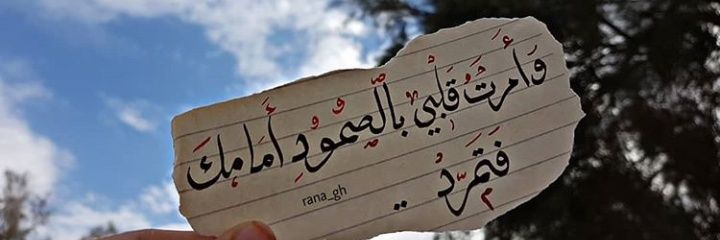 وَأَمَرتُ قَلبْي بِالَصّمُودِ أمَامِكَ
فَتَمَرّدَ ..
rana_gh